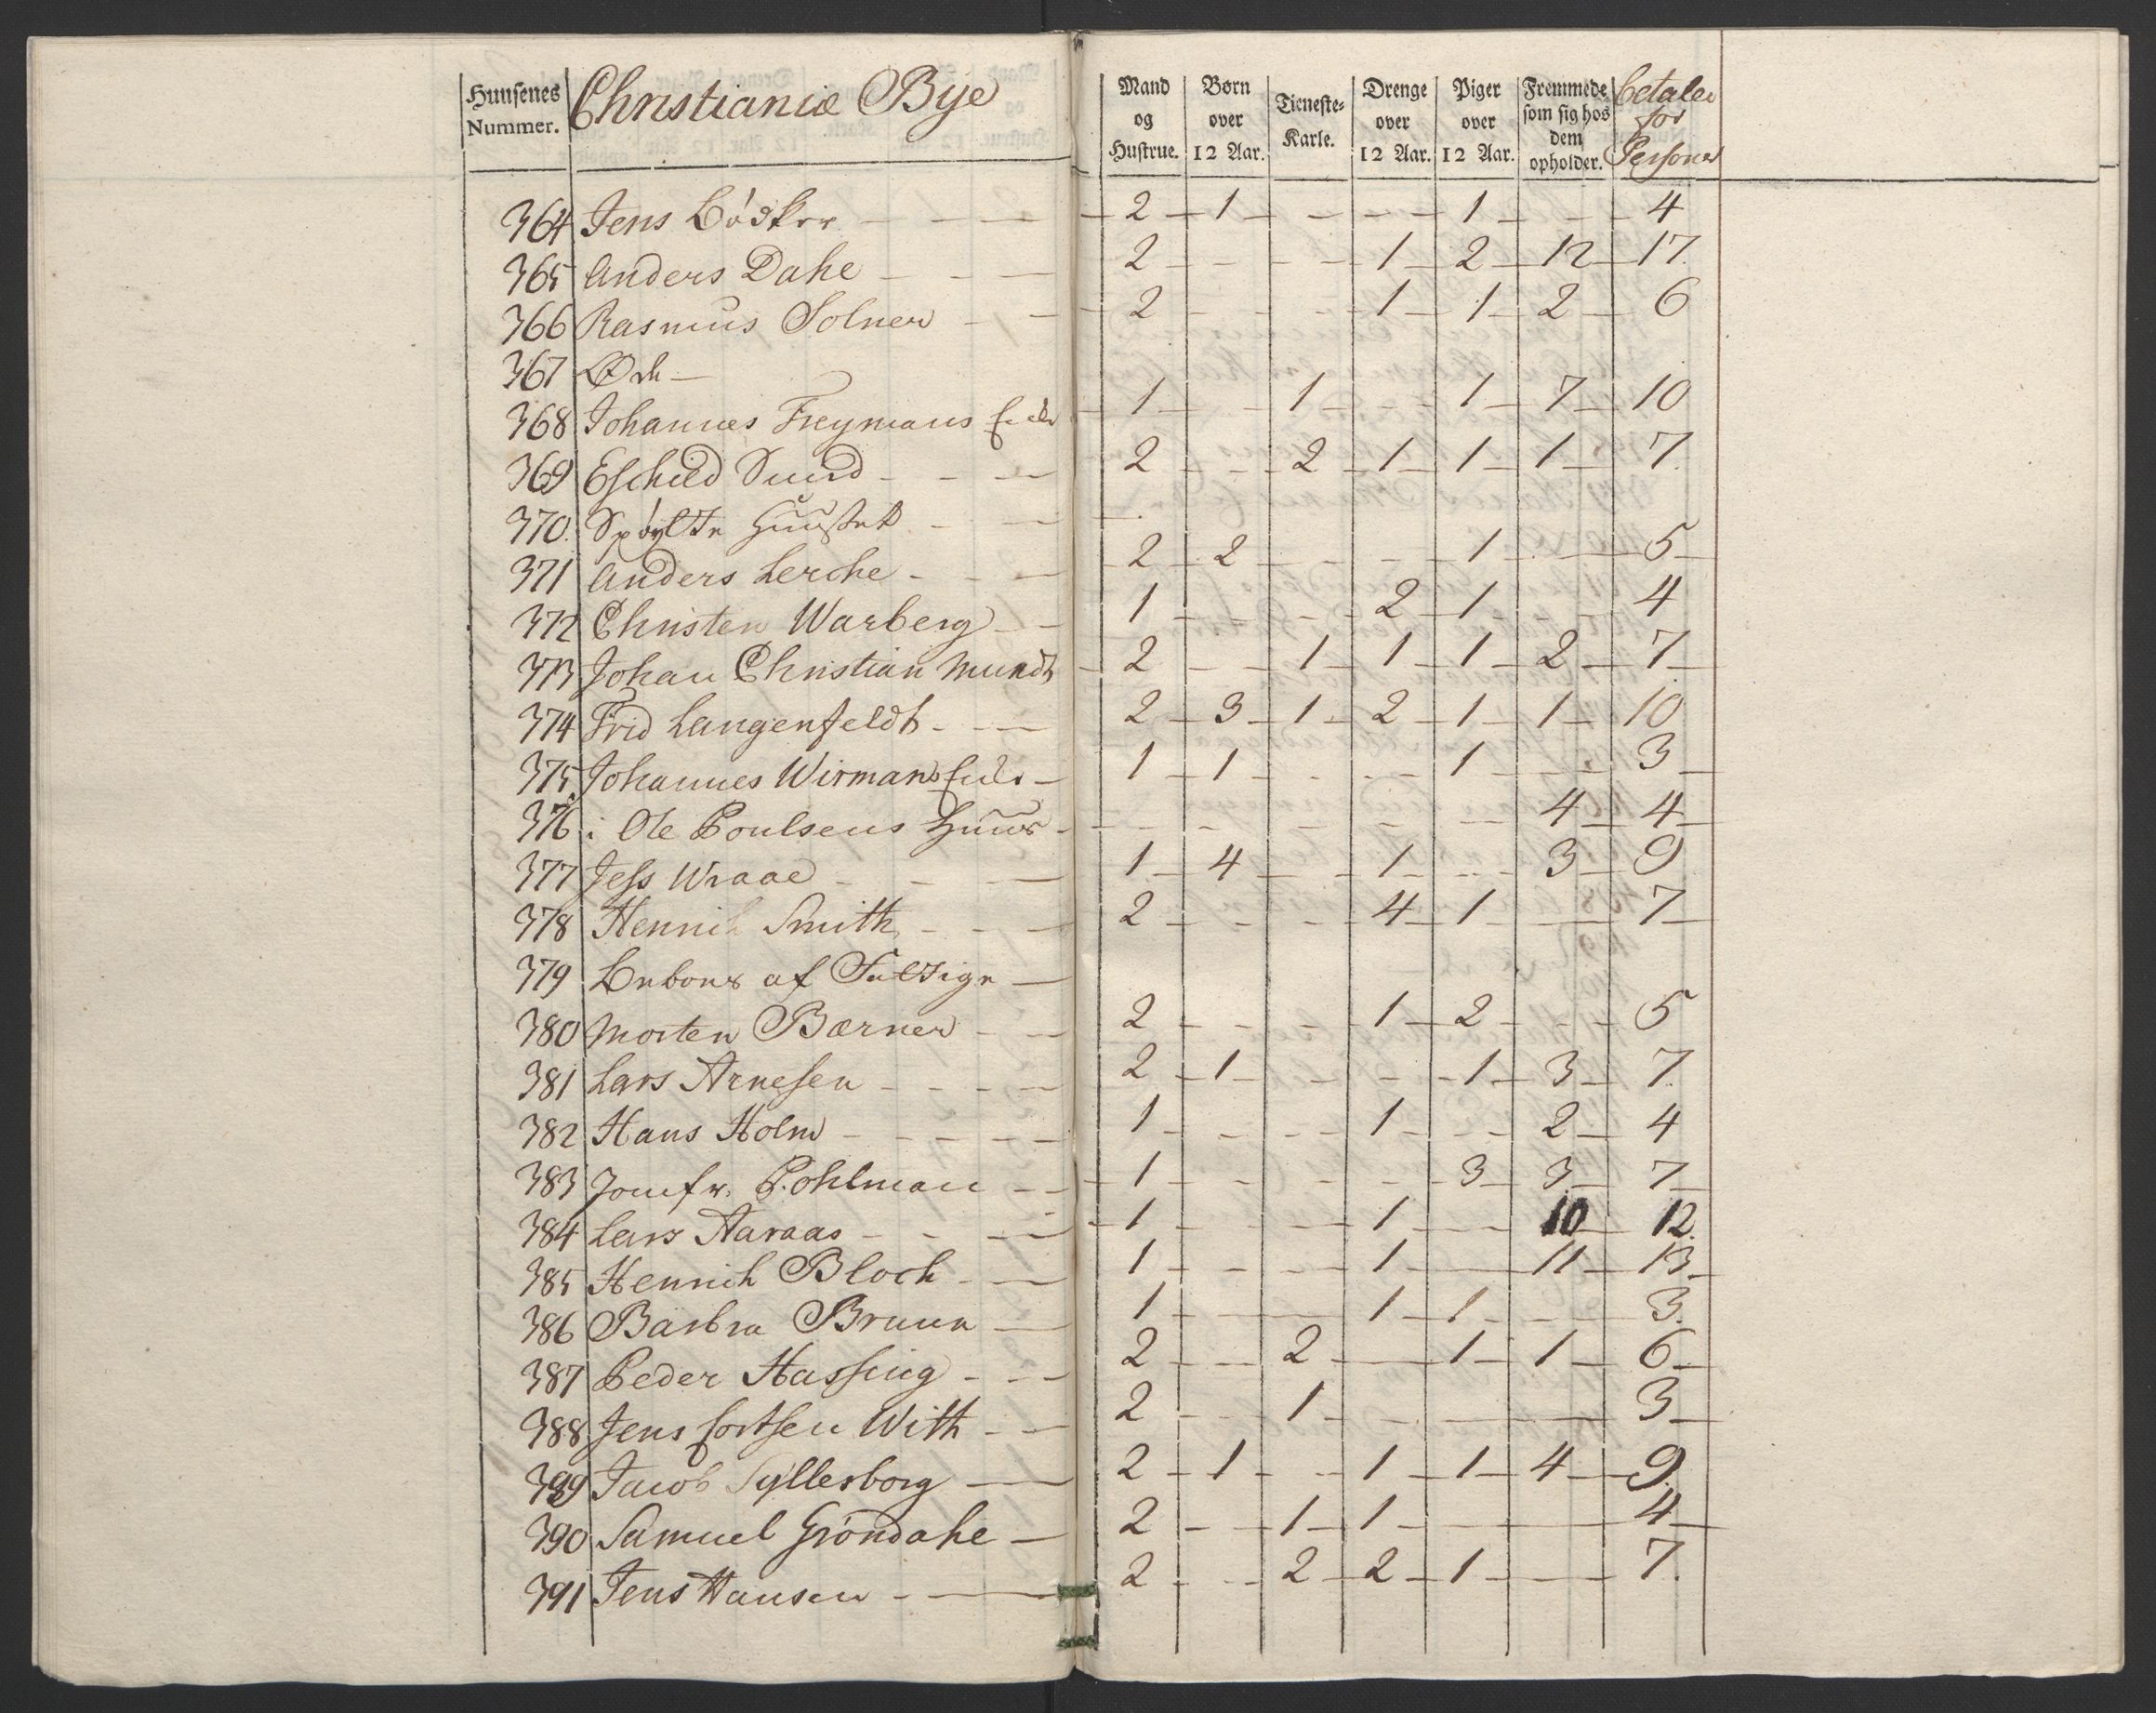 Huusenes Nummer. Christianiæ Bye Mand og Hustrue. Børn over 12 Aar. Tieneste-Karle. Drenge over 12 Aar. Piger over 12 Aar. Fremmede som sig hos dem opholder. betaler for Persones
364 Jens Bødker — — — 2 — 1 — — — — 1 — — — 4
365 Anders Dahe — — — 2 — — — — 1 — 2 — 12 — 17.
366 Rasmus Solner — — 2 — — — — 1 — 1 — 2 — 6
367 Øde —
368 Johannes Freymans Enke 1 — — 1 — — 1 — 7 — 10
369 Eschild Sund — — — 2 — — 2 — 1 — 1 — 1 — 7.
370. Sprøyte Huuset — —
371 Anders Lerche — — — 2 — 2 — — — 1 — — 5 —
372 Christen Warberg — — 1 — — — — 2 — 1 — — 4
373 Johan Christian Mundt — 2 — — 1 — 1 — 1 — 2 — 7 —
374 Frid Langenfeldt — — — 2 — 3 — 1 — 2 — 1 — 1 — 10
375. Johannes Wirmans Enke — 1 — 1 — — — — 1 — — 3 —
376 i Ole Poulsens Huus — — — — — — 4 — 4 —
377 Jess Wraae — — — 1 — 4 — — 1 — — 3 — 9
378 Henrich Smith — — — 2 — — — — 4 — 1 — — 7 —
379 Beboes af Fattige —
380 Morten Bærner — — 2 — — — — 1 — 2 — — — 5
381 Lars Arnesen — — — — 2 — 1 — — — — 1 — 3 — 7.
382 Hans Holm — — — — — 1 — — — — 1 — — — 2 — 4
383 Jomfr. Pohlman — — 1 — — — — — 3 — 3 — 7 —
384 Lars Aaraas — — — 1 — — — — 1 — — 10 12.
385 Henrich Bloch — — 1 — — — — 1 — — 11 — 13 —
386 Barbra Bruun — 1 — — — 1 — 1 — — — 3.
387 Peder Hassing — — — 2 — — 2 — — 1 — 1 — 6 —
388 Jens Cortsen With — — 2 — — 1 — — — — 3 —
389 Jacob Syllesborg — 2 — 1 — — 1 — 1 — 4 — 9.
390 Samuel Grøndahe — 2 — — 1 — 1 — — — 4 —
391 Jens Hansen — — 2 — — 2 — 2 — 1 — — 7.